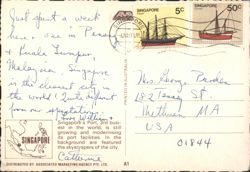 Just spent a week
here & are in Penang
& Kuala Lumpur,
Malaysia. Singapore
is the cleanest city in
the world! Quite different
from our expectations.
Love William &
Catherine
Singapore's Port, 3rd busi-
est in the world, is still
growing and modernising
its port facilities. In the
background are featured
the skyscrapers of the city.
SINGAPORE
DISTRIBUTED BY: ASSOCIATED MARKETING AGENCY PTE. LTD.
A1
SINGAPORE
5c
SINGAPORE
50c
Mrs. George
182 St.
Methuen, MA
USA
01844